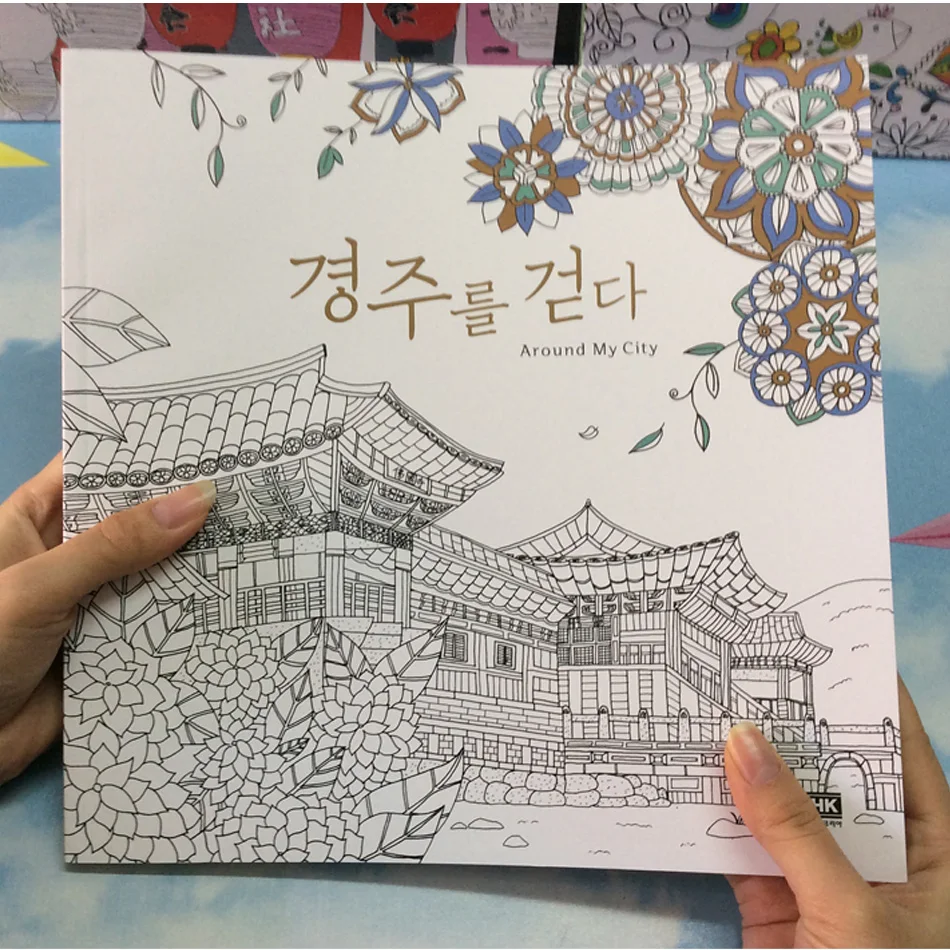 社
경주를 걷다
Around My City
HK